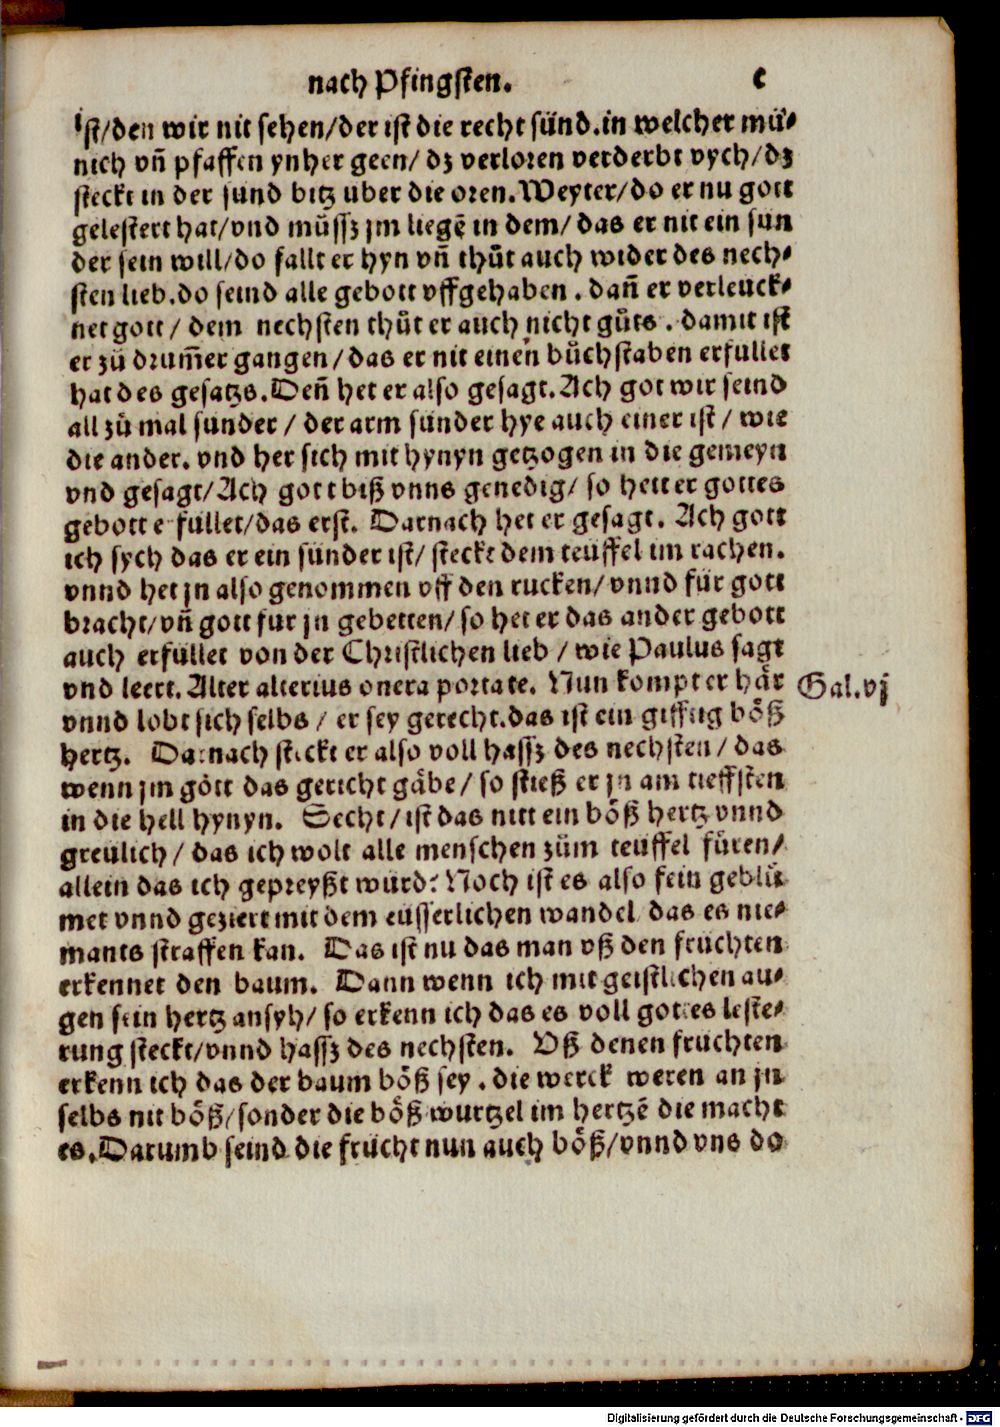 nach Pfingsten. c
ist/den wir nit sehen/der ist die recht sünd.in welcher mü-
nich vñ pfaffen ynher geen/ dz verloren verderbt vych/dz
steckt in der sund bitz uber die oren.Weyter/do er nu gott
gelestert hat/vnd müssz jm liegē in dem/ das er nit ein sün
der sein will/do fallt er hyn vñ thůt auch wider des nech-
sten lieb.do seind alle gebott vffgehaben . dañ er verleuck-
net gott / dem nechsten thůt er auch nicht gůts . damit ist
er zů drum̄er gangen/das er nit einen bůchstaben erfullet
hat des gesatzs.Deñ het er also gesagt.Ach got wir seind
all zů mal sunder / der arm sunder hye auch einer ist / wie
die ander. vnd her sich mit hynyn getzogen in die gemeyn
vnd gesagt/Ach gott biß vnns genedig/ so hett er gottes
gebott e füllet/das erst. Darnach het er gesagt. Ach gott
ich sych das er ein sünder ist/ steckt dem teüffel im rachen.
vnnd het jn also genommen vff den rucken/vnnd für gott
bracht/vñ gott fur jn gebetten/ so het er das ander gebott
auch erfüllet von der Christlichen lieb / wie Paulus sagt
vnd leert. Alter alterius onera portate. Nun kompt er här
Gal.vj
vnnd lobt sich selbs / er sey gerecht.das ist ein gifftig böß
hertz. Darnach steckt er also voll hassz des nechsten / das
wenn jm gott das gericht gäbe/ so stieß er jn am tieffsten
in die hell hynyn. Secht/ist das nitt ein böß hertz vnnd
greulich / das ich wolt alle menschen zům teüffel füren/
allein das ich gepreyßt wurd: Noch ist es also fein geblü
met vnnd geziert mit dem eüsserlichen wandel das es nie-
mants straffen kan. Das ist nu das man vß den fruchten
erkennet den baum. Dann wenn ich mit geistlichen au-
gen sein hertz ansyh/ so erkenn ich das es voll gottes leste-
rung steckt/vnnd hassz des nechsten. Vß denen fruchten
erkenn ich das der baum böß sey . die werck weren an jn
selbs nit böß/sonder die böß wurtzel im hertzē die macht
es.Darumb seind die frücht nun auch böß/vnnd vns do
Digitalisierung gefördert durch die Deutsche Forschungsgemeinschaft - DFG